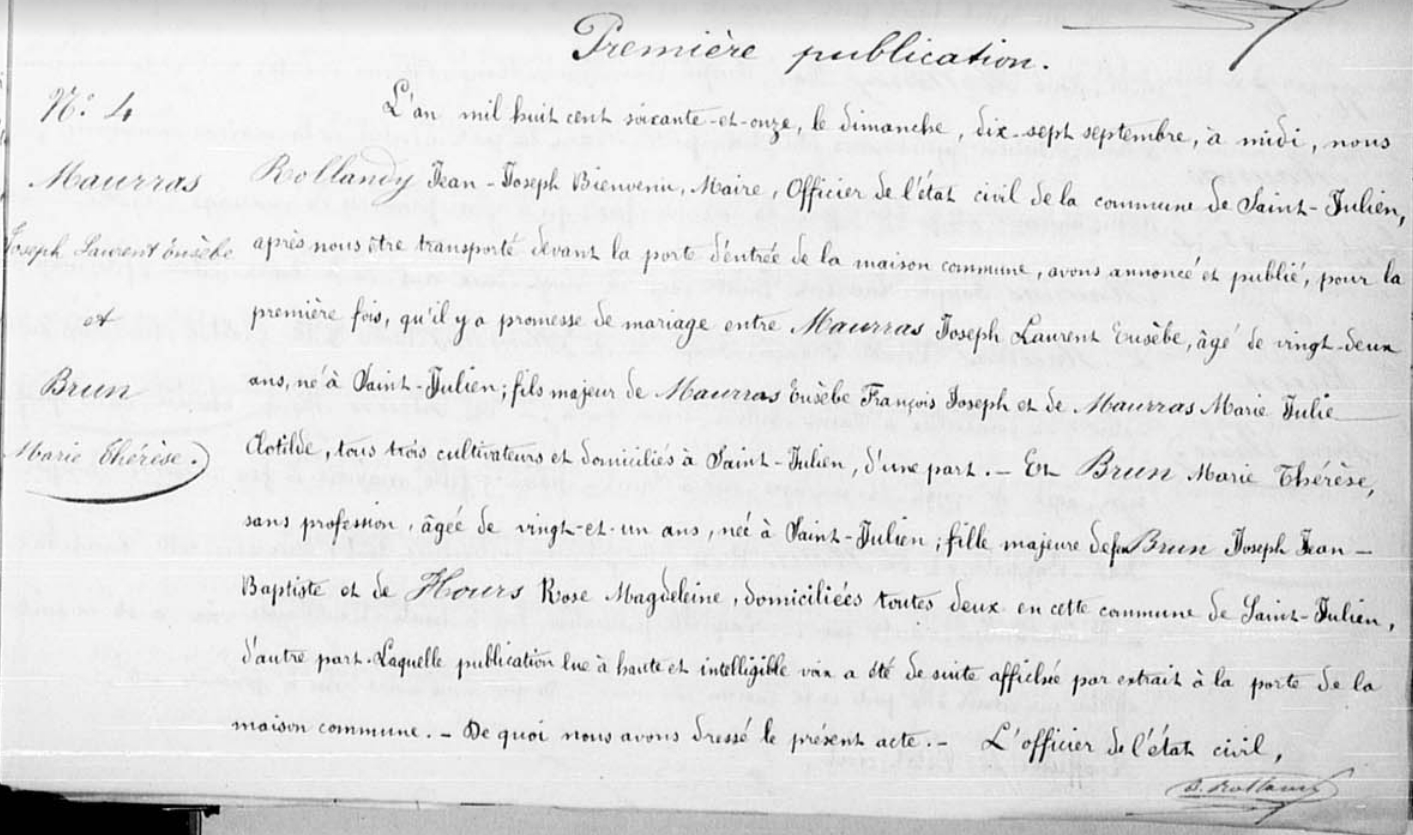 Première publication.
N.° 4
Maurras
Joseph Laurent Eusèbe
et
Brun
Marie Thérèse.
L'an mil huit cent soixante-et-onze, le dimanche, dix-sept septembre, à midi, nous
Rollandy Jean-Joseph Bienvenu, Maire, Officier de l'état civil de la commune de Saint-Julien,
après nous être transporté devant la porte d'entrée de la maison commune, avons annoncé et publié, pour la
première fois, qu'il y a promesse de mariage entre Maurras Joseph Laurent Eusèbe, âgé de vingt-deux
ans, né à Saint-Julien; fils majeur de Maurras Eusèbe François Joseph et de Maurras Marie Julie
Clotilde, tous trois cultivateurs et domiciliés à Saint-Julien, d'une part. - Et Brun Marie Thérèse,
sans profession, âgée de vingt-et-un ans, née à Saint-Julien; fille majeure de feu Brun Joseph Jean-
Baptiste et de Hours Rose Magdeleine, domiciliées toutes deux en cette commune de Saint-Julien,
d'autre part. Laquelle publication lue à haute et intelligible voix a été de suite affichée par extrait à la porte de la
maison commune. - De quoi nous avons dressé le présent acte. - L'officier de l'état civil,
B. Rollandy